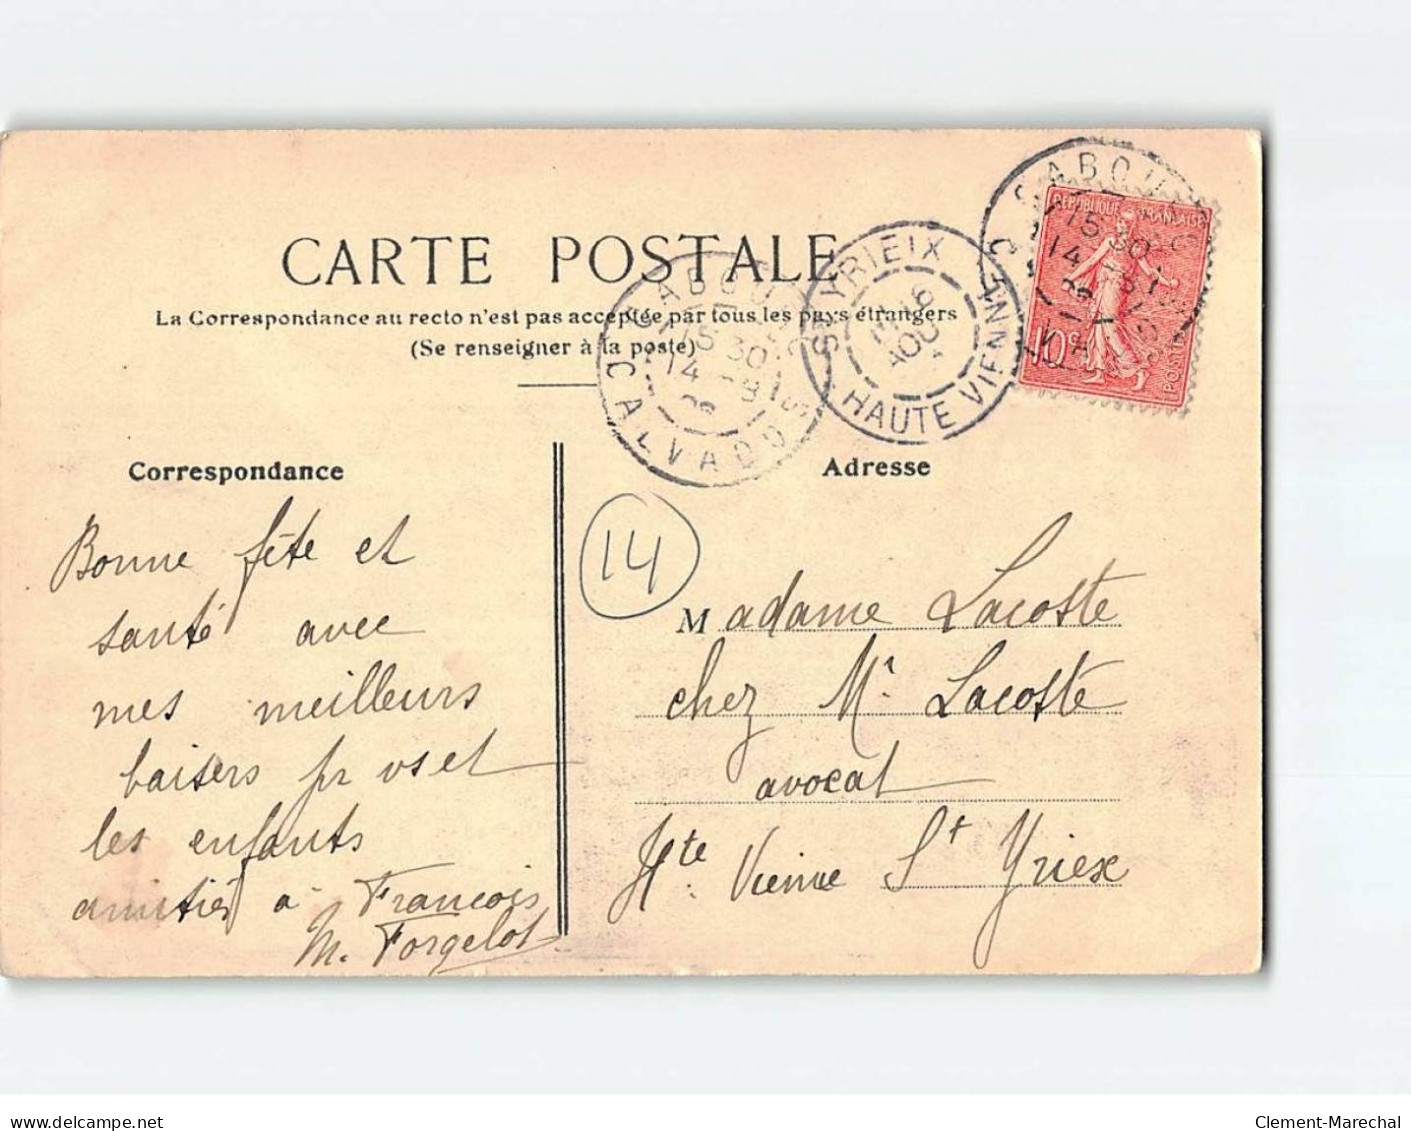 CARTE POSTALE
La Correspondance au recto n'est pas acceptée par tous les pays étrangers
(Se renseigner à la poste)
CABOURG
15 30
14 -8
CALVADOS
ST YRIEIX
16
AOU
HAUTE VIENNE
CABOU
15 30
14
RÉPUBLIQUE FRANÇAISE
10c
POSTES
Correspondance
Bonne fête et
santé avec
mes meilleurs
baisers pr vs et
les enfants
amitiés à Francois
M. Forgelot
14
Adresse
Madame Lacoste
chez Mr. Lacoste
avocat
Hte Vienne St Yriex
delcampe.net
Clement-Marechal